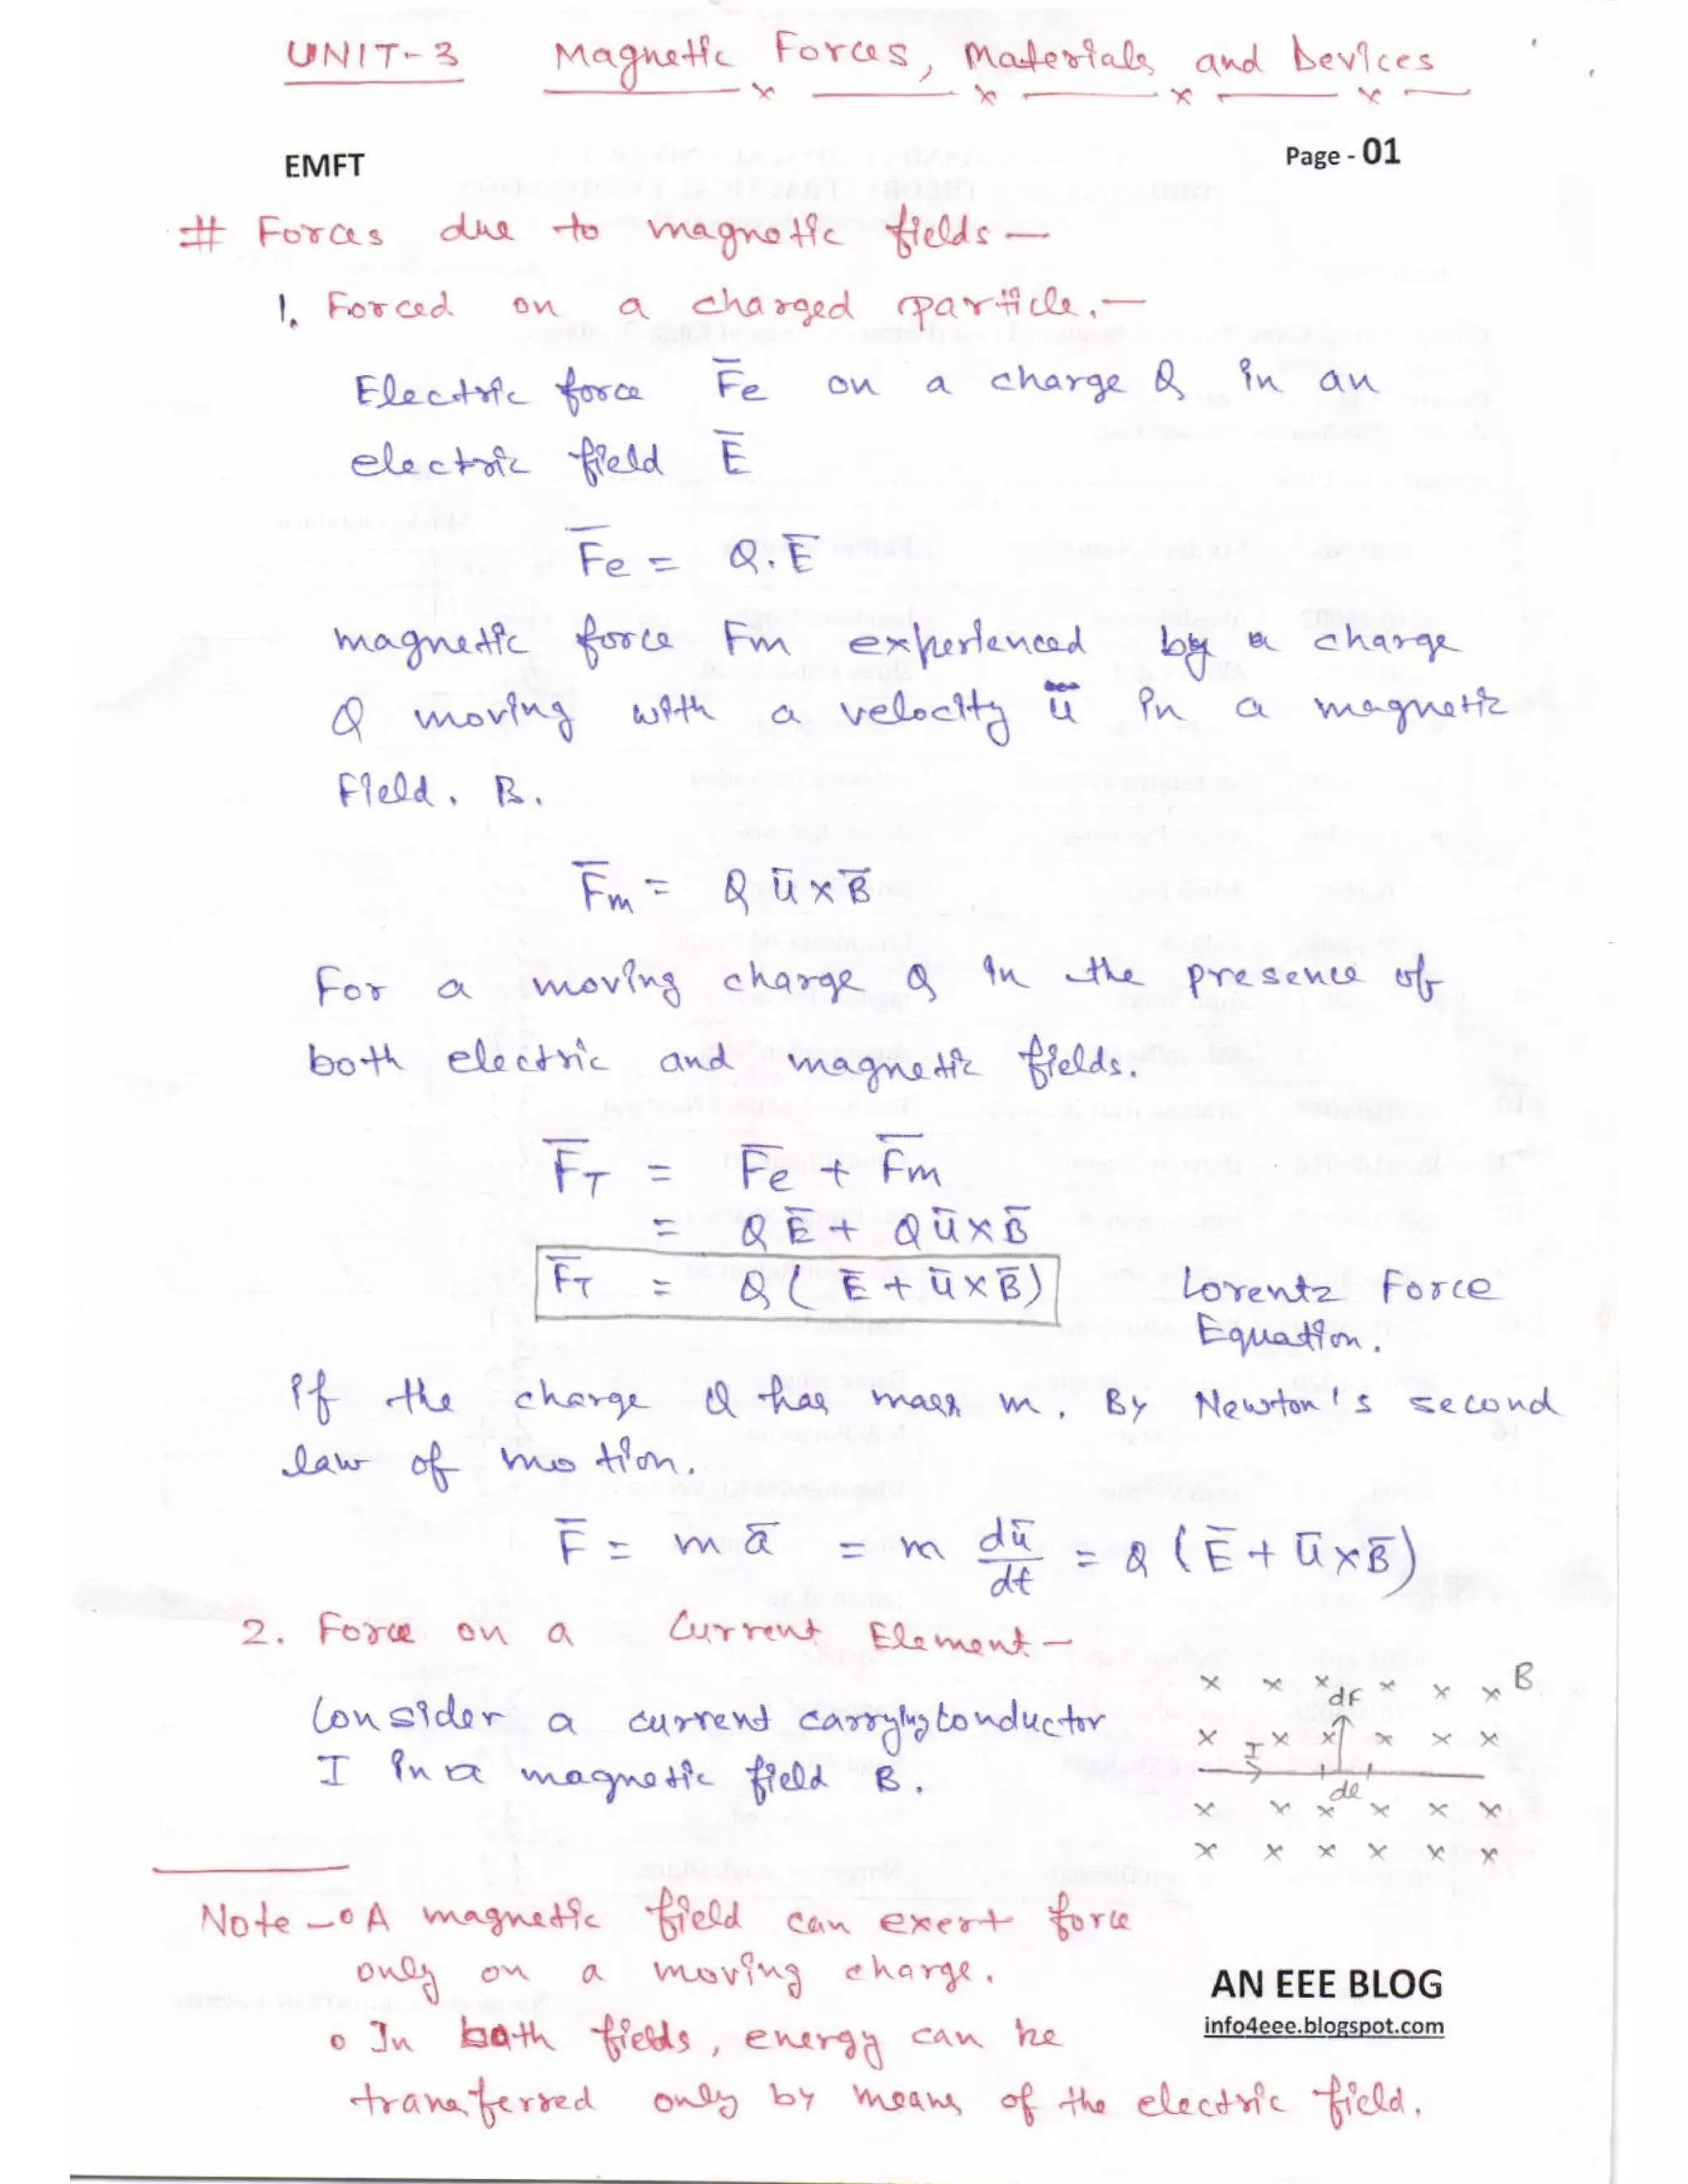 UNIT-3 Magnetic Forces, Materials and Devices
EMFT
Page - 01
# Forces due to magnetic fields —
1. Forced on a charged particle. —
Electric force F̅e on a charge Q in an
electric field E̅
F̅e = Q.E̅
magnetic force Fm experienced by a charge
Q moving with a velocity u̅ in a magnetic
Field. B.
F̅m = Q u̅ × B̅
For a moving charge Q in the presence of
both electric and magnetic fields.
F̅T = F̅e + F̅m
= Q E̅ + Q u̅ × B̅
F̅T = Q ( E̅ + u̅ × B̅ )
Lorentz Force
Equation.
if the charge Q has mass m. By Newton's second
law of motion.
F̅ = m a̅ = m du̅/dt = Q ( E̅ + u̅ × B̅ )
2. Force on a Current Element —
Consider a current carrying conductor
I in a magnetic field B.
× × × × × × B
dF
× × × × × ×
I
dl
× × × × × ×
× × × × × ×
Note — ∘ A magnetic field can exert force
only on a moving charge.
∘ In both fields, energy can be
transferred only by means of the electric field.
AN EEE BLOG
info4eee.blogspot.com